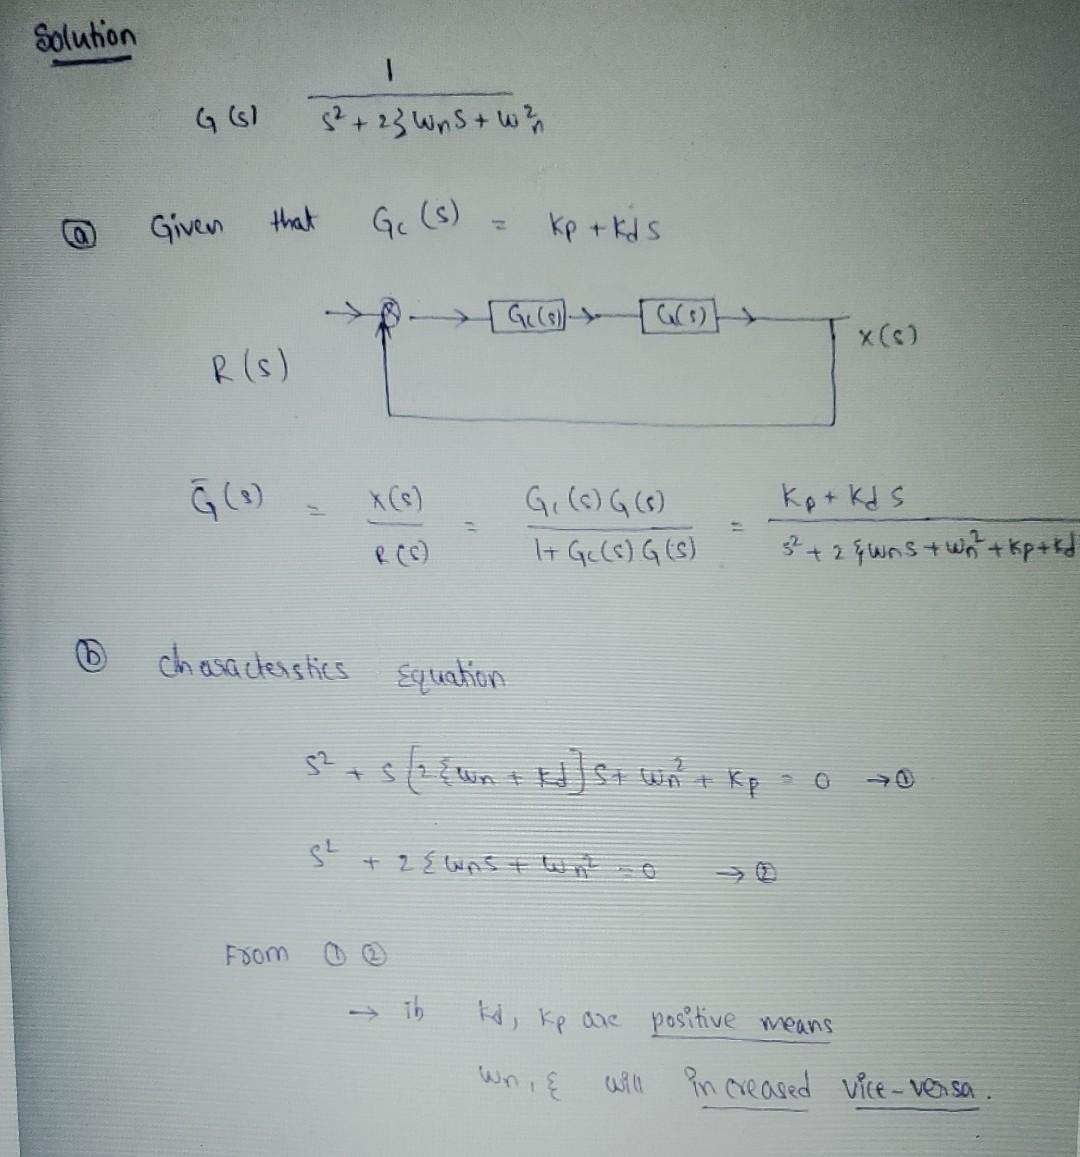 Solution
1
G(s) s² + 2ξ Wn S + W²n
ⓐ Given that Gc(s) = Kp + Kd s
Gc(s) G(s)
X(s)
R(s)
Ḡ(s) = X(s) / R(s) = G,(s) G(s) / 1 + Gc(s) G(s) = Kp + Kd S / s² + 2ξWnS + Wn² + Kp + Kd
ⓑ characterstics Equation
S² + S [2ξWn + Kd] S + Wn² + Kp = 0 → ①
S² + 2ξWnS + Wn² = 0 → ②
From ① ②
→ if Kd, Kp are positive means
Wn, ξ will increased vice-versa.